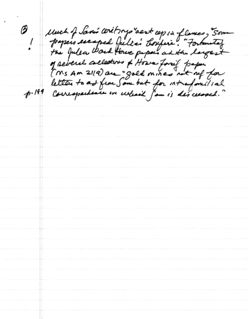 ③ Much of Sam's writings "went up in flames," Some
! papers escaped Julia's bonfire. "Fortunately
the Julia Ward Howe papers and the largest
of several collections of Howe family papers
(Ms Am 2119) are "gold mines not only for
letters to and from Sam but for intrafamilial
p. 144 correspondence in which Sam is discussed."